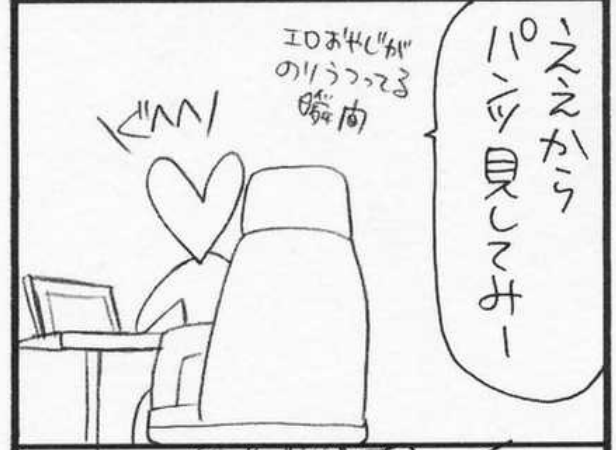 ええから
パンツ見してみー
エロおやじが
のりうつってる
瞬間
ぐへへ